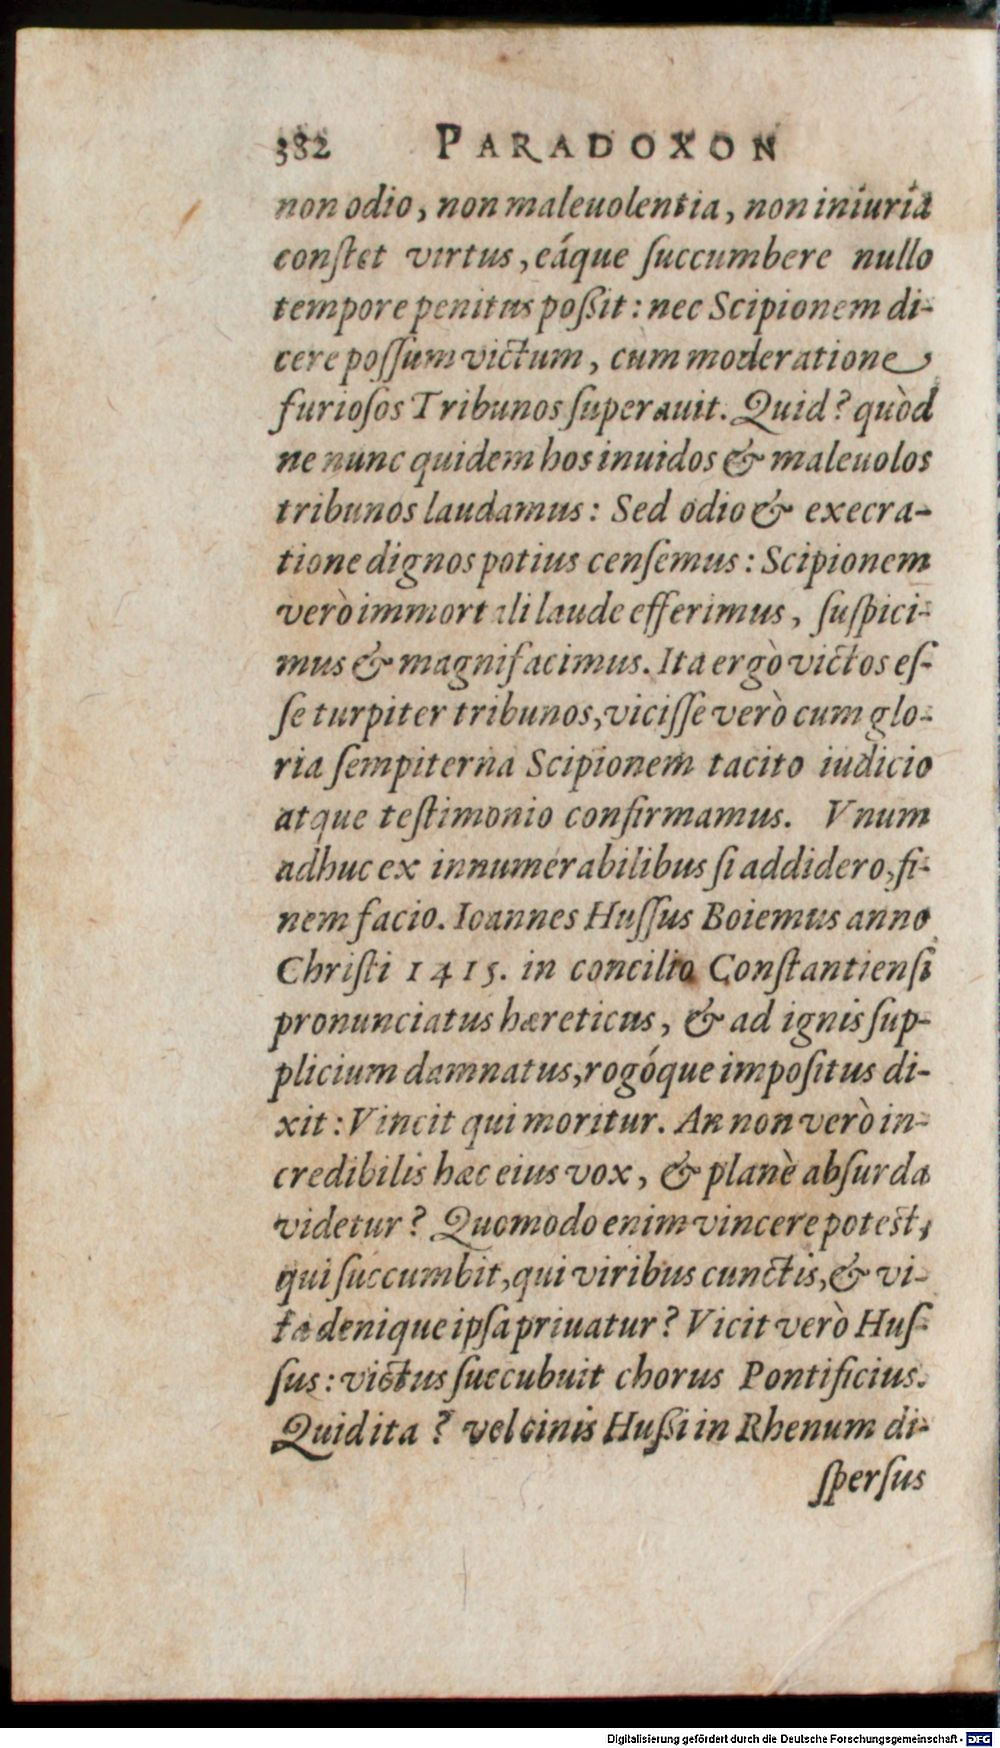 382 PARADOXON
non odio, non maleuolentia, non iniuriâ
constet virtus, eáque succumbere nullo
tempore penitus possit: nec Scipionem di-
cere possum victum, cùm moderatione
furiosos Tribunos superauit. Quid? quòd
ne nunc quidem hos inuidos & maleuolos
tribunos laudamus: Sed odio & execra-
tione dignos potius censemus: Scipionem
verò immortali laude efferimus, suspici-
mus & magnifacimus. Ita ergò victos es-
se turpiter tribunos, vicisse verò cum glo-
ria sempiterna Scipionem tacito iudicio
atque testimonio confirmamus. Vnum
adhuc ex innumerabilibus si addidero, fi-
nem facio. Ioannes Hussus Boiemus anno
Christi 1415. in concilio Constantiensi
pronunciatus hæreticus, & ad ignis sup-
plicium damnatus, rogóque impositus di-
xit: Vincit qui moritur. An non verò in-
credibilis hæc eius vox, & planè absurda
videtur? Quomodo enim vincere potest,
qui succumbit, qui viribus cunctis, & vi-
ta denique ipsa priuatur? Vicit verò Hus-
sus: victus succubuit chorus Pontificius.
Quid ita? vel cinis Hussi in Rhenum di-
spersus
Digitalisierung gefördert durch die Deutsche Forschungsgemeinschaft - DFG